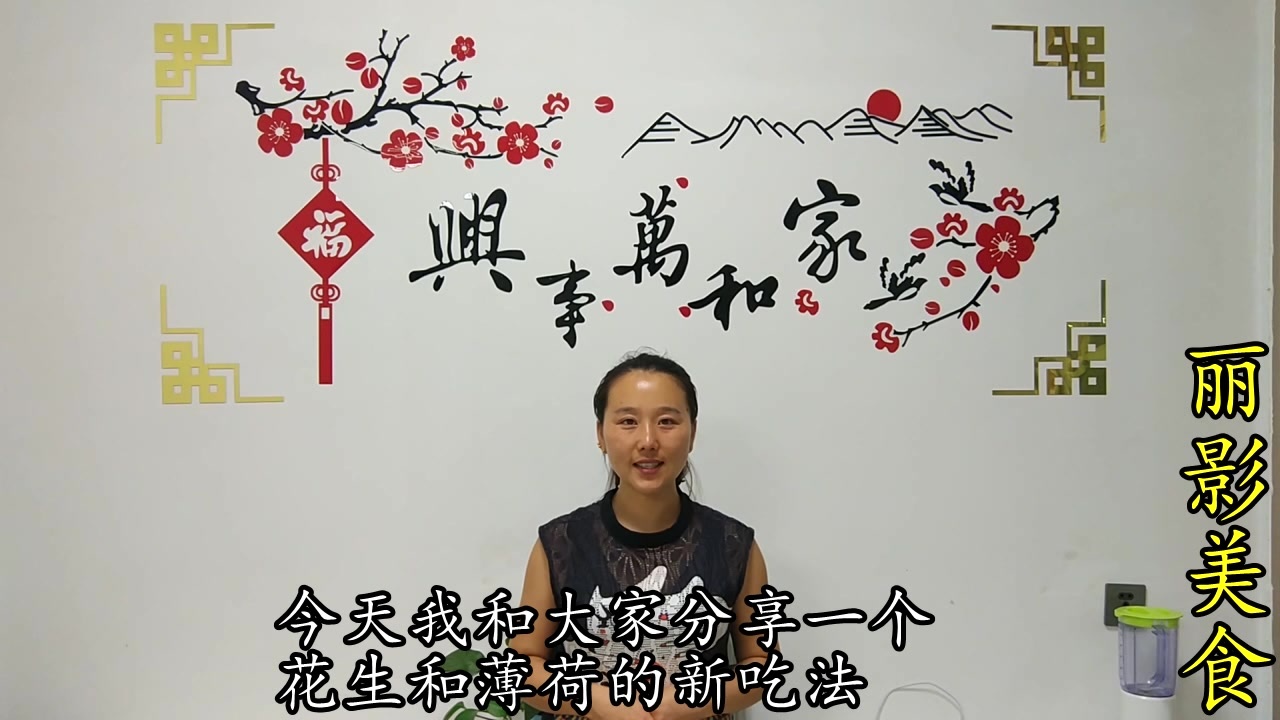 福
家和萬事興
丽影美食
今天我和大家分享一个
花生和薄荷的新吃法